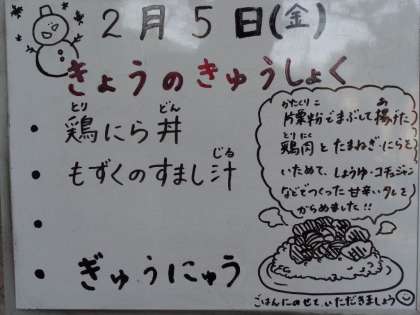 2月5日(金)
きょうのきゅうしょく
・鶏にら丼
とり どん
・もずくのすまし汁
じる
・
・ぎゅうにゅう
かたくりこ あ
片栗粉でまぶして揚げた
とりにく
鶏肉とたまねぎ・にらを
いためて、しょうゆ・コチュジャン
などでつくった甘辛いタレを
からめました!!
ごはんにのせていただきましょう